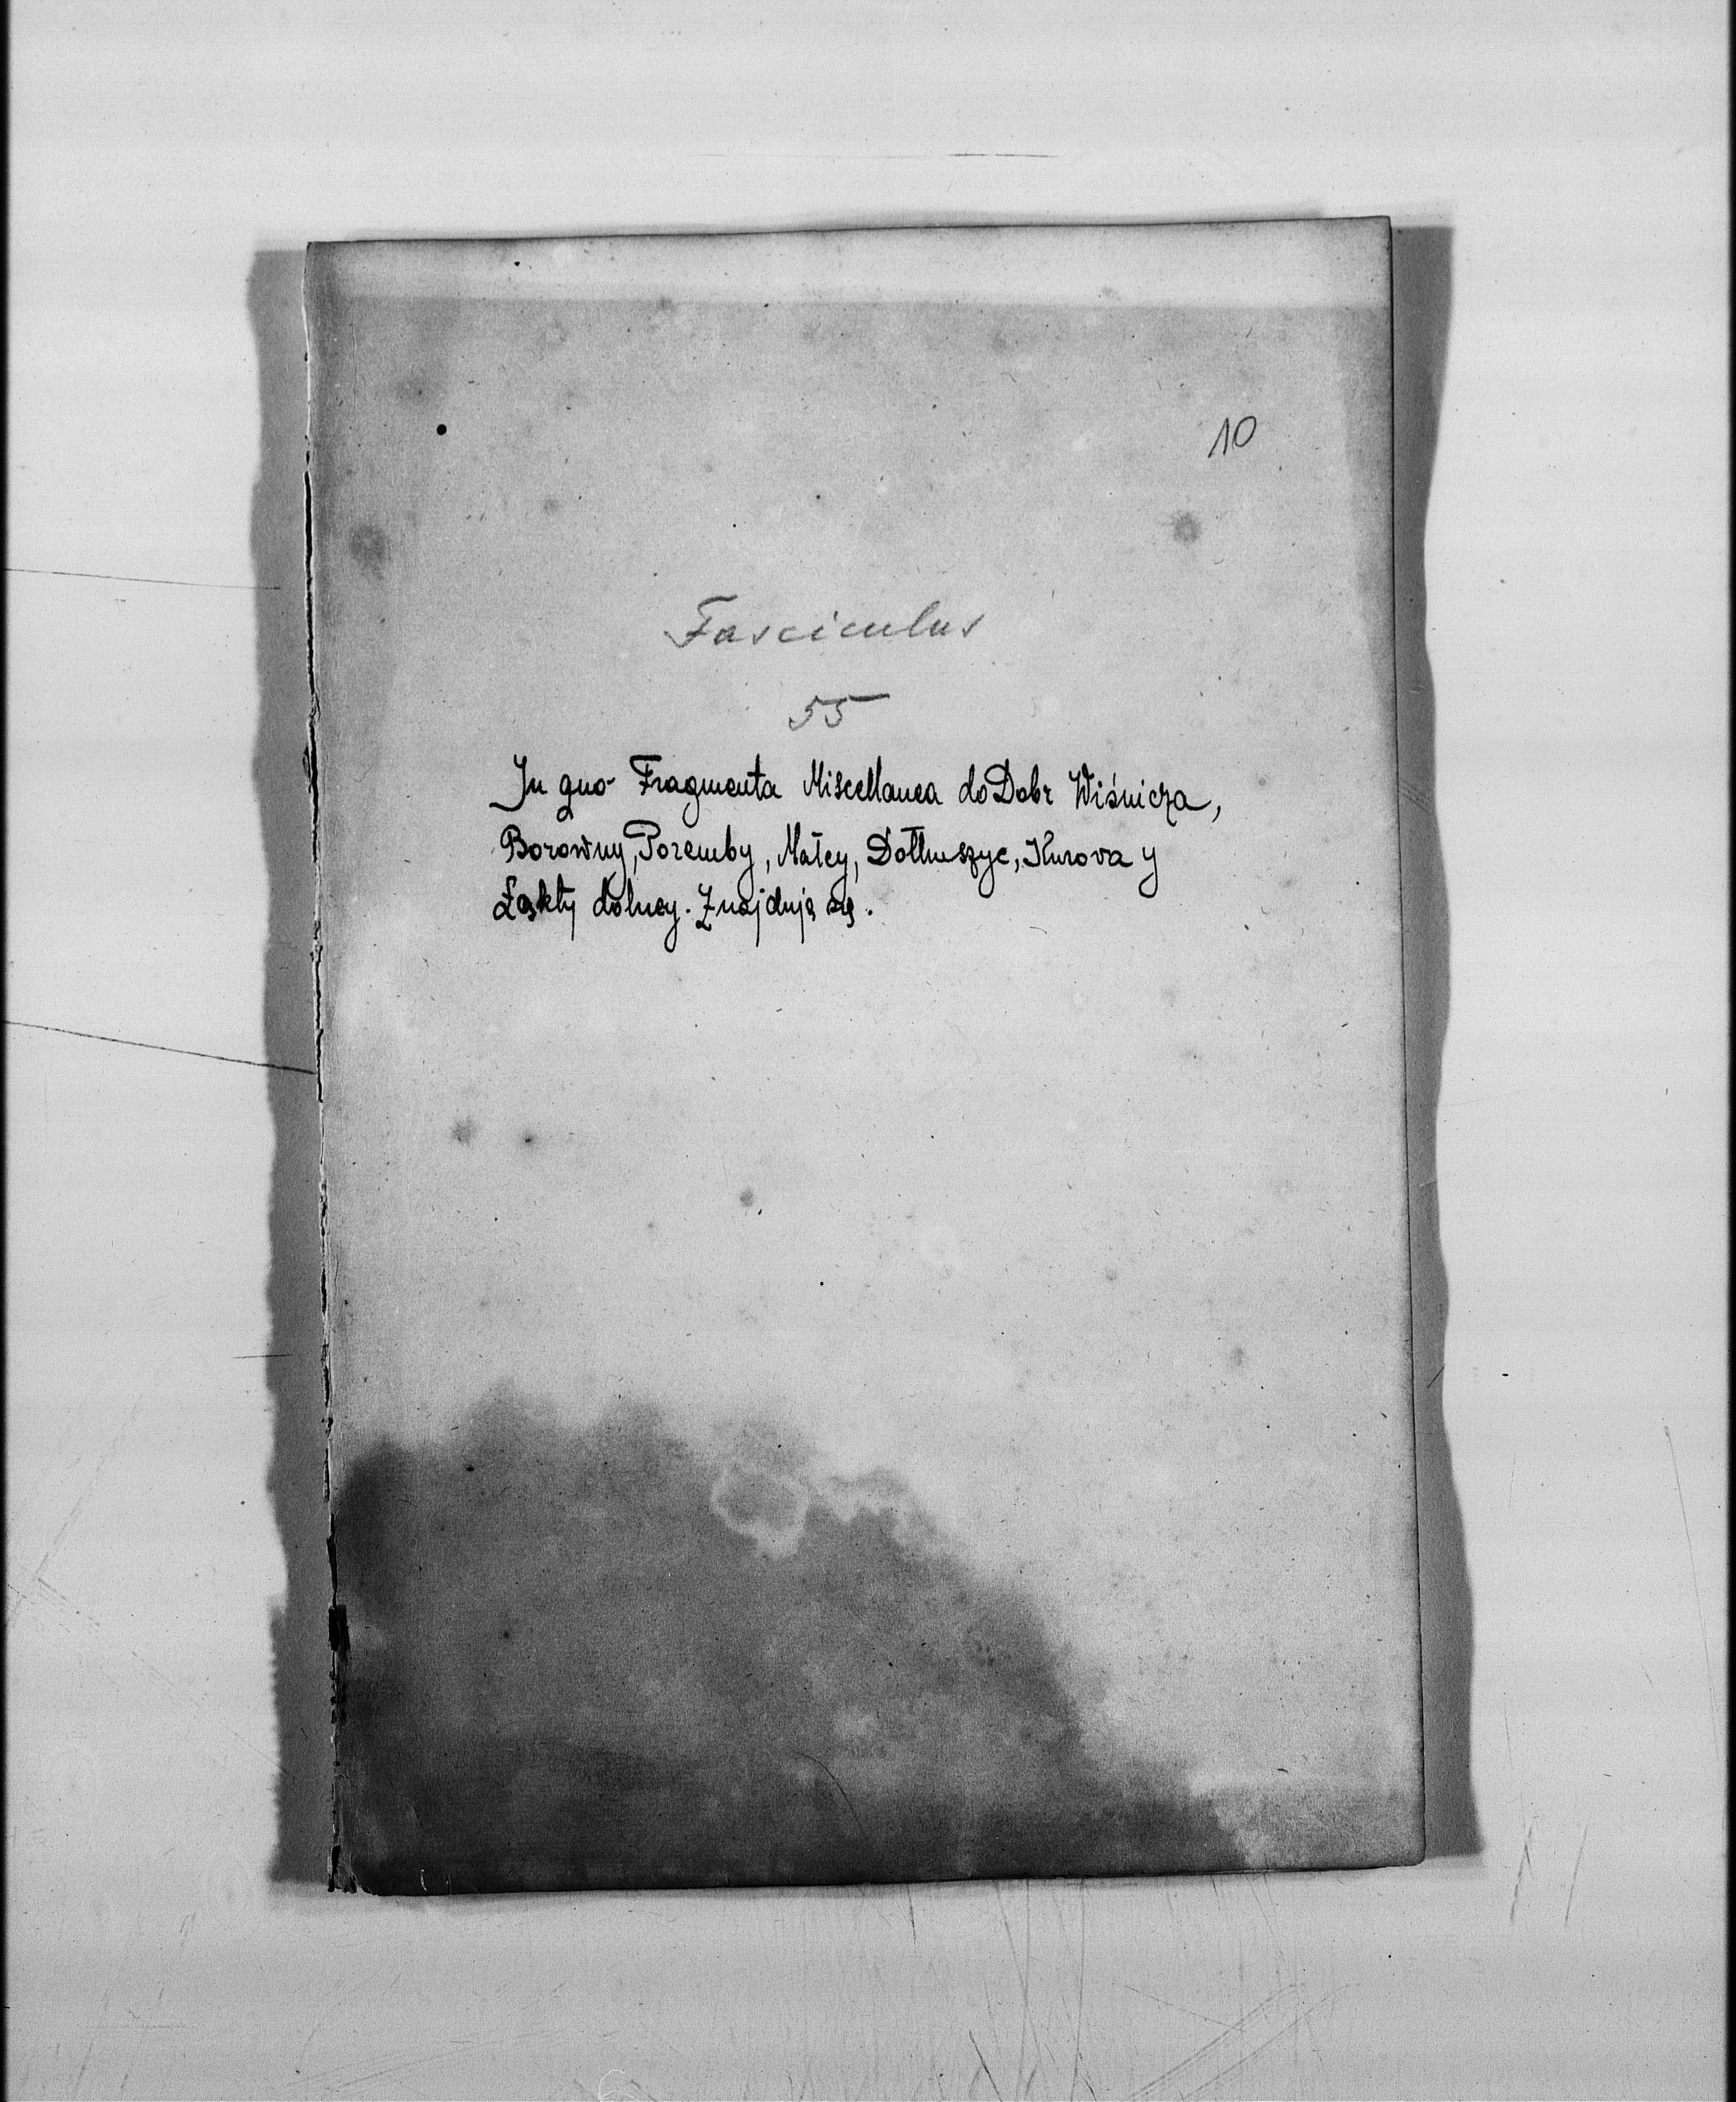 10
Fasciculus
55
In quo Fragmenta Miscellanea do Dobr Wiśnicza,
Borowny, Poremby, Małey, Dołłuszyc, Kurova y
Łąkty dolney. Znajdują się.